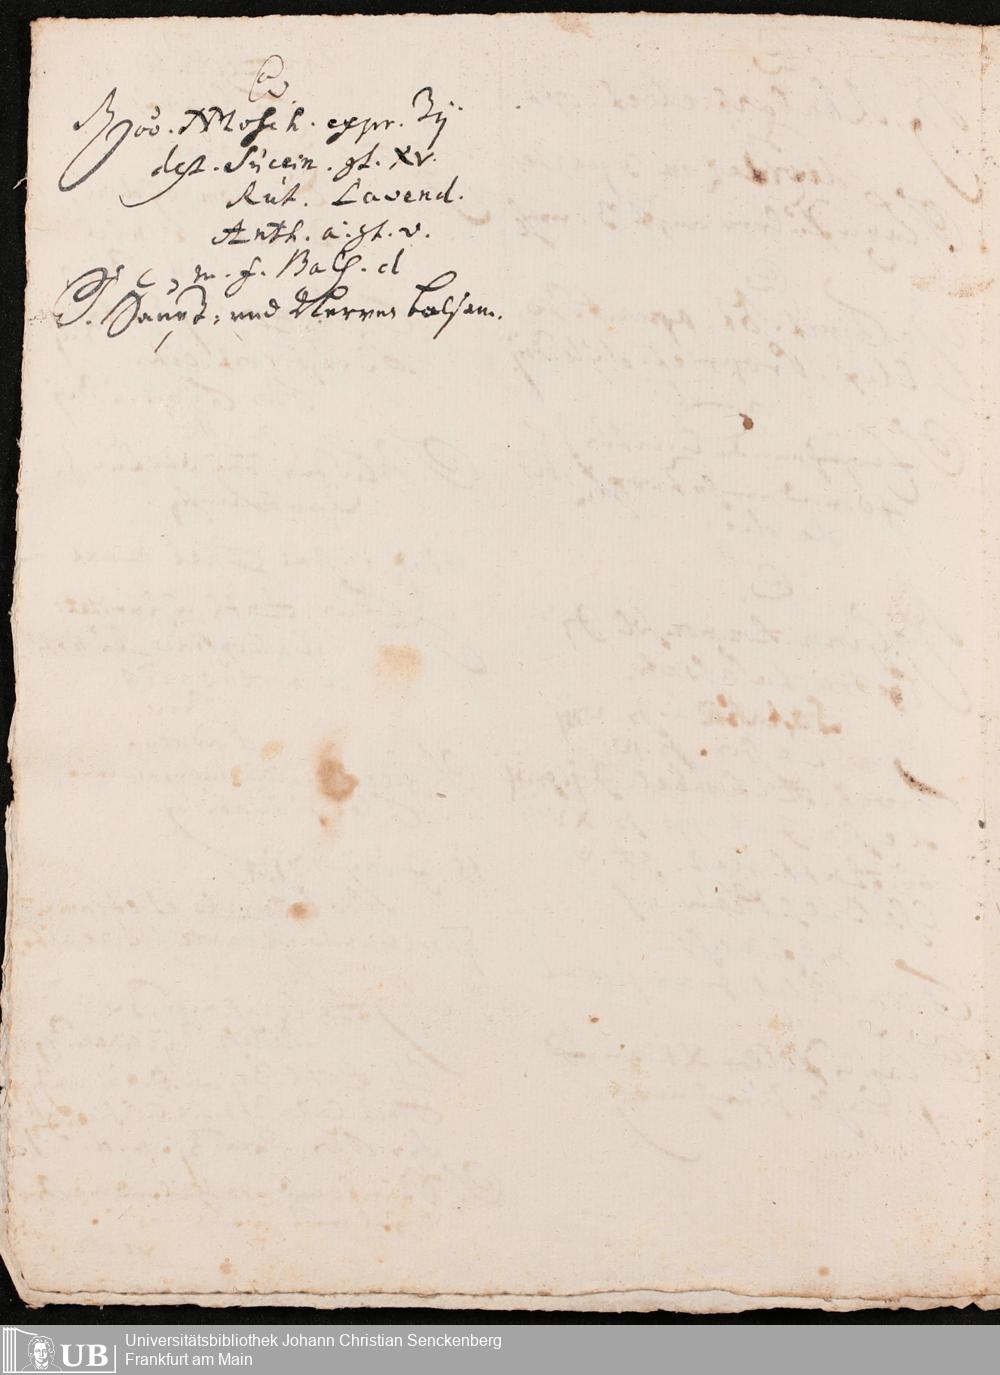 ℞ oo. Mosch. expr. ʒij
dest. Succin. gt. xv.
Rut. Lavend.
Anth. a. gt. v.
m. f. Bals. d
S. Haupt- und Nerven balsam.
UB
Universitätsbibliothek Johann Christian Senckenberg
Frankfurt am Main